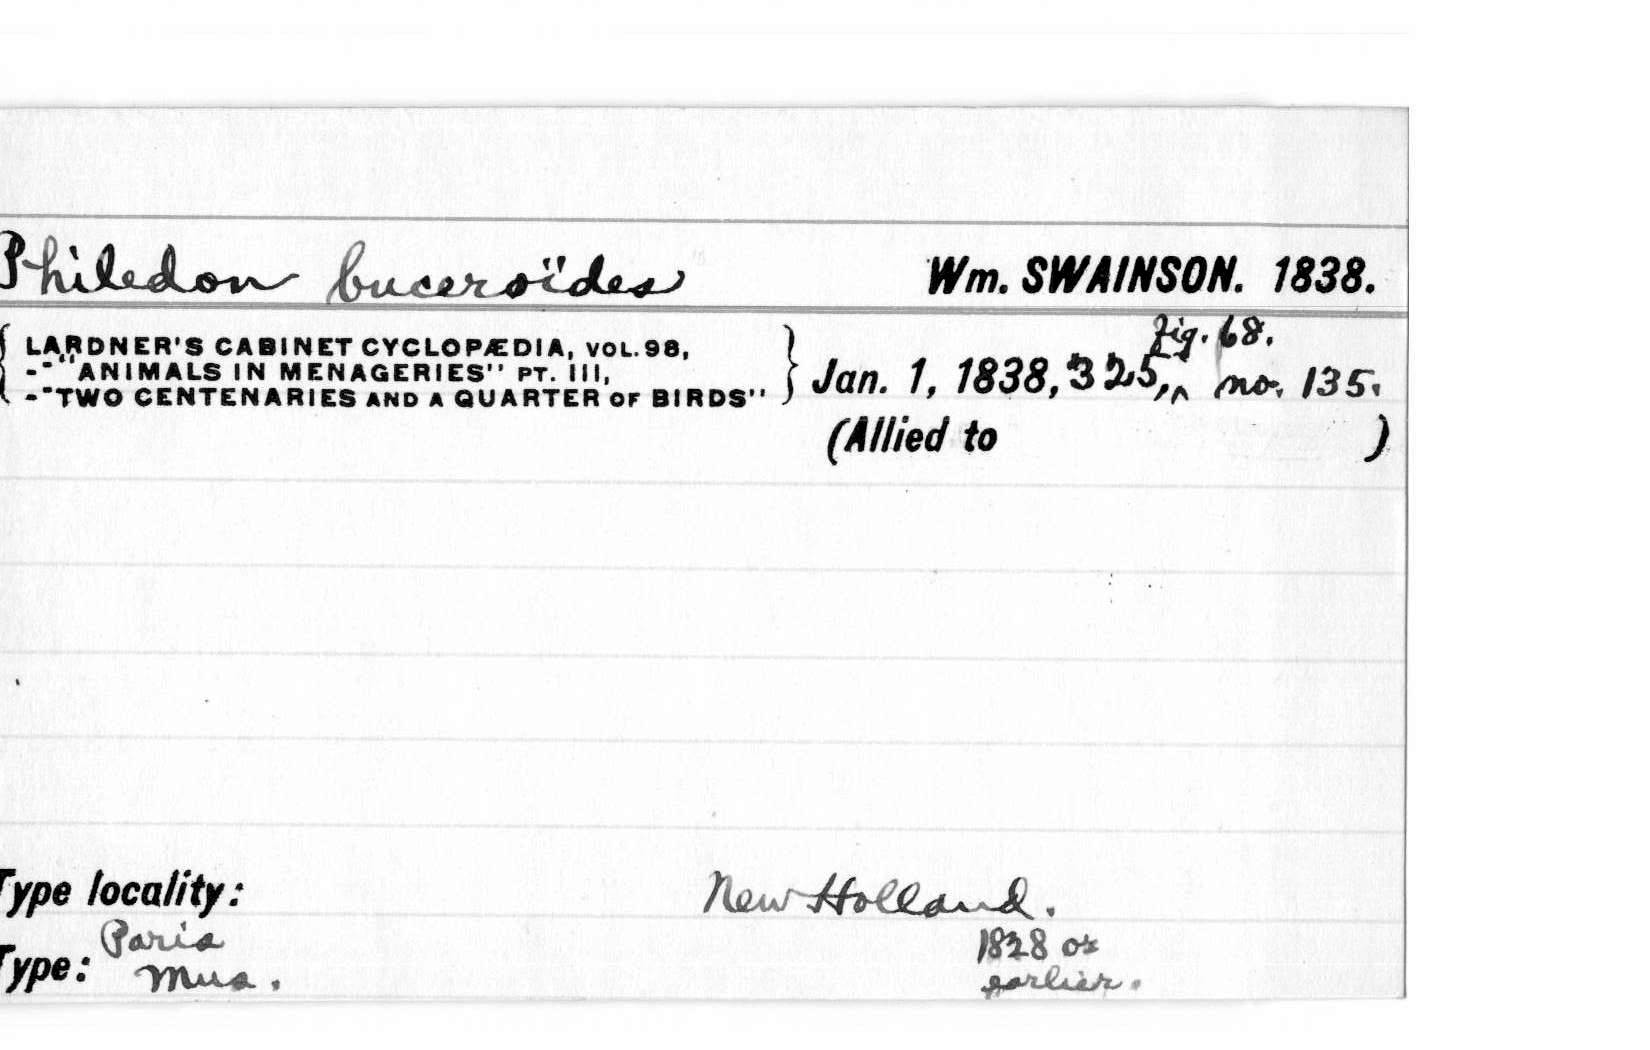 Philedon buceroïdes Wm. SWAINSON. 1838.
fig. 68.
{ LARDNER'S CABINET CYCLOPÆDIA, VOL. 98,
-"ANIMALS IN MENAGERIES" PT. III, } Jan. 1, 1838, 325,^ no. 135.
-"TWO CENTENARIES AND A QUARTER OF BIRDS"
(Allied to )
Type locality: New Holland.
Paris 1828 or
Type: Mus. earlier.